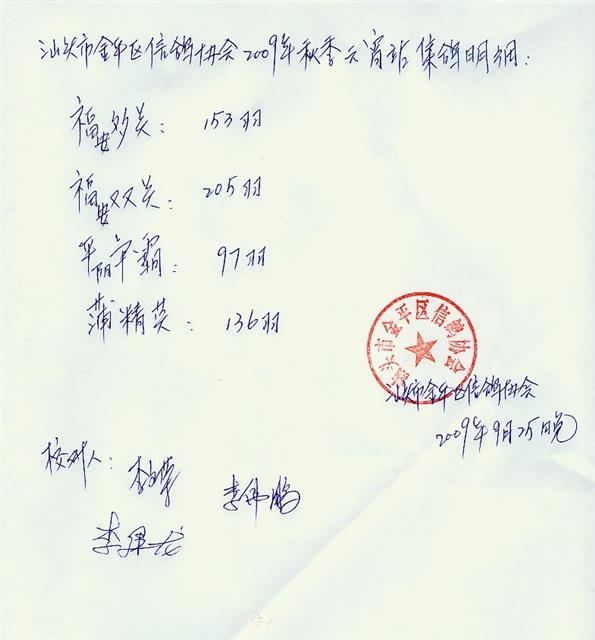 汕头市金平区信鸽协会2009年秋季云霄站集鸽明细:
福安多关: 153羽
福安双关: 205羽
平阳争霸: 97羽
蒲精英: 136羽
汕头市金平区信鸽协会
汕头市金平区信鸽协会
2009年9月25晚
校对人:
李伟鹏